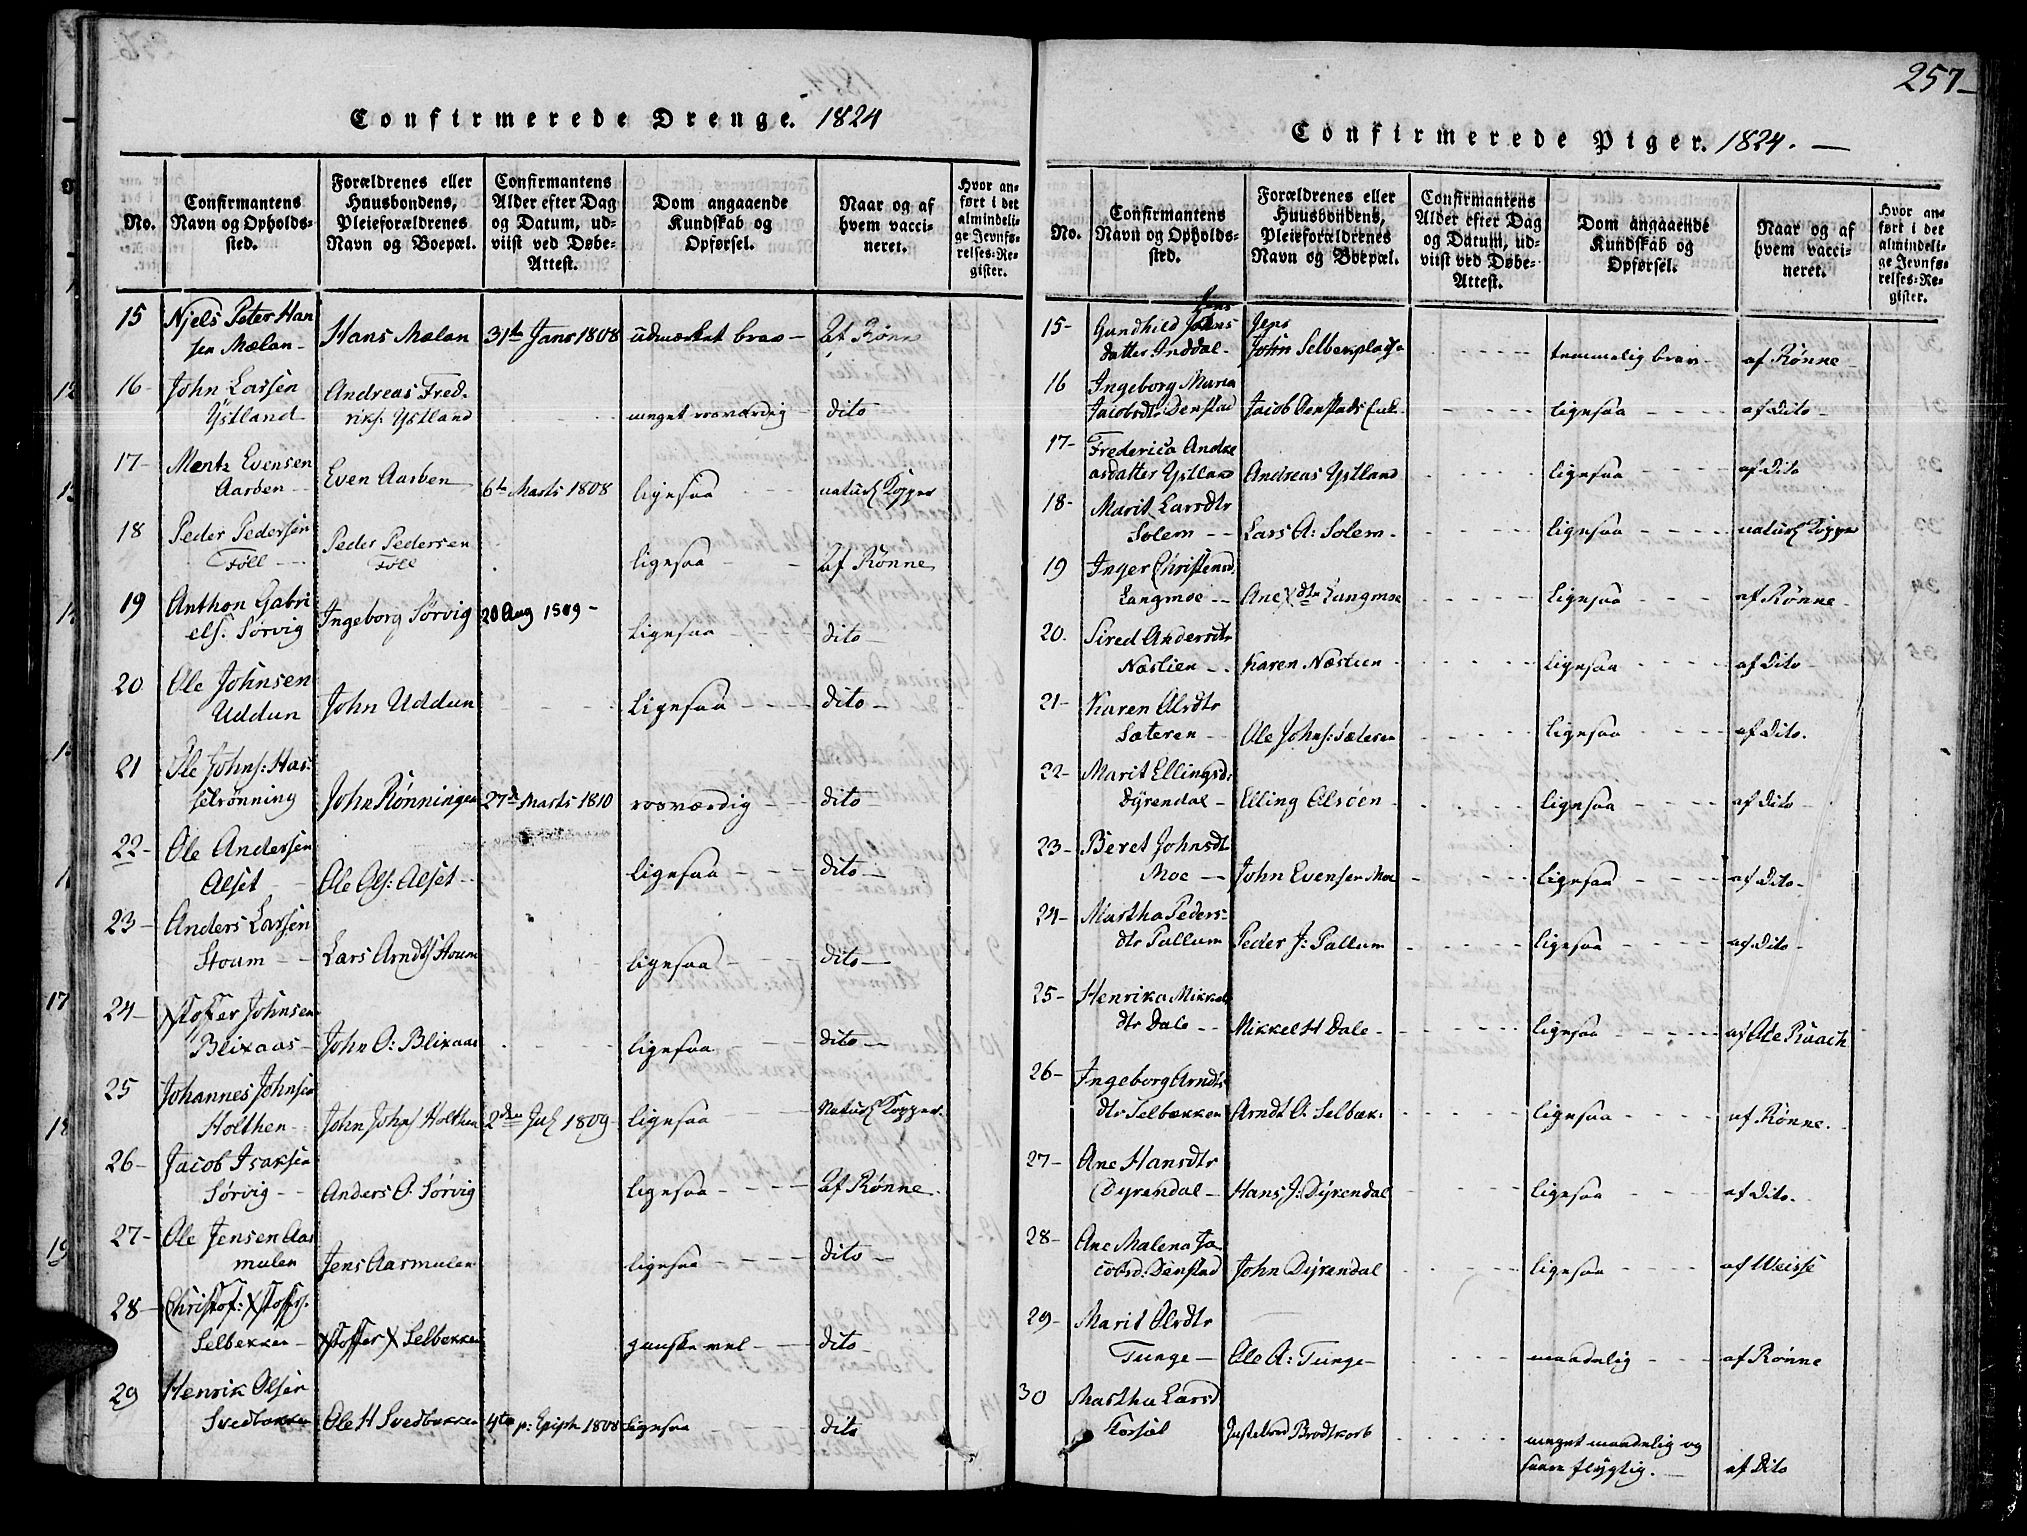 257
Confirmerede Drenge. 1824
No.
Confirmantens Navn og Opholds-sted.
Forældrenes eller Huusbondens, Pleieforældrenes Navn og Boepæl.
Confirmantens Alder efter Dag og Datum, ud-viist ved Døbe-Attest.
Dom angaaende Kundskab og Opførsel.
Naar og af hvem vacci-neret.
Hvor an-ført i det almindeli-ge Jevnfø-relses-Re-gister.
15 Njels Peter Han
sen Mælan - Hans Mælan 31te Janr 1808 udmærket brav - Af Rønne
16 - John Larsen Andreas Fred.
Ystland riks. Ystland meget roværdig - dito
17 - Mentz Evensen
Aarben - Even Aarben 6te Marts 1808 ligesaa naturl Kopper
18 Peder Pedersen Peder Pedersen
Föll - Föll ligesaa - Af Rønne
19 Anthon Gabri
els. Sörvig Ingeborg Sørvig 20 Aug 1809 - Ligesaa - dito -
20 Ole Johnsen
Uddun John Uddun Ligesaa - dito -
21 Ole Johns: Has:
selrønning John Rönningen 27de Marts 1810 rosværdig - dito -
22 - Ole Andersen
Alset Ole Ols: Alset - ligesaa - dito -
23 - Anders Larsen
Stoum - Lars Arndts Stoum ligesaa - dito -
24 - Xstoffer Johnsen
Blixaas - John O: Blixaas ligesaa - dito -
25 Johannes Johnsen
Holthen - John Johns Holthen 2den Jul 1809 - ligesaa Naturl Kopper.
26 - Jacob Isaksen
Sørvig - Anders O. Sørvig ligesaa - Af Rønne.
27 - Ole Jensen Aas
mulen Jens Aasmulen ligesaa - dito -
28 - Christof: Xstoffs.
Selbekken - Xstoffer X Selbekken ganske vel - dito -
29 Henrik Olsen
Svedbakken Ole H Svedbakken 4te p: Epiph 1808 ligesaa dito
Confirmerede Piger. 1824. -
No.
Confirmantens Navn og Opholds-sted.
Forældrenes eller Huusbondens, Pleieforældrenes Navn og Boepæl.
Confirmantens Alder efter Dag og Datum, ud-viist ved Døbe-Attest.
Dom angaaende Kundskab og Opførsel.
Naar og af hvem vacci-neret.
Hvor an-ført i det almindeli-ge Jevnfø-relses-Re-gister.
Jens
15 - Gundhild Johns Jens
datter Inddal - John Selbekplads temmelig brav - af Rønne -
16 Ingeborg Maria
Jacobsdtr Denstad Jacob Denstads Enk - ligesaa - af Dito -
17 - Frederica Andre
asdatter Ystland Andreas Ystland ligesaa - af Dito
18 - Marit Larsdtr
Solem - Lars A: Solem - ligesaa - naturl Kopper
19 Inger Christensd.
Langmoe - Ane Xdtr Langmoe Ligesaa - af Rønne -
20. Sired Andersdtr
Næstien - Karen Næstien ligesaa - af Dito -
21 - Karen Olsdtr
Sæteren - Ole Johns: Sæteren ligesaa - af Dito.
22 - Marit Ellingsdr
Dyrendal - Elling Olsöen ligesaa - af Dito -
23 - Beret Johnsdtr
Moe - John Evensen Moe ligesaa - af Dito -
24 - Martha Peders-
dtr Pallum Peder J: Pallum ligesaa - af Dito -
25 - Henrika Mikkels
dtr Dale - Mikkel H Dale - ligesaa - af Ole Raach
26 - Ingeborg Arndts
dtr Selbækken Arndt O. Selbæk: ligesaa - af Rønne.
27 - Ane Hansdtr
Dyrendal - Hans J: Dyrendal ligesaa - af Dito.
28 - Ane Malena Ja
cobsd: Denstad John Dyrendal ligesaa - af Weisse
29 - Marit Olsdtr
Tunge - Ole A: Tunge - maadelig - af Rønne
30 Martha Larsd
Storsöl Justebrod Brodtkorb meget maadelig og
saare flygtig. - af Dito